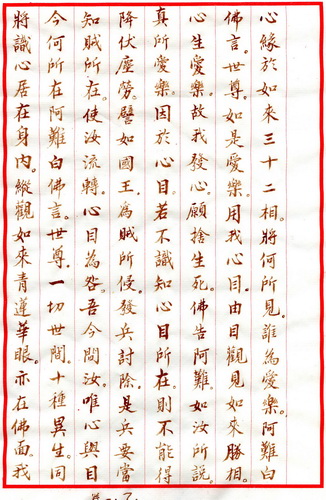 心緣於如來三十二相。將何所見。誰為愛樂。阿難白
佛言。世尊。如是愛樂。用我心目。由目觀見如來勝相。
心生愛樂。故我發心。願捨生死。佛告阿難。如汝所說。
真所愛樂。因於心目若不識知心目所在則不能得
降伏塵勞。譬如國王為賊所侵。發兵討除。是兵要當
知賊所在。使汝流轉。心目為咎。吾今問汝。唯心與目
今何所在阿難白佛言。世尊。一切世間。十種異生。同
將識心居在身內。縱觀如來青蓮華眼。亦在佛面。我